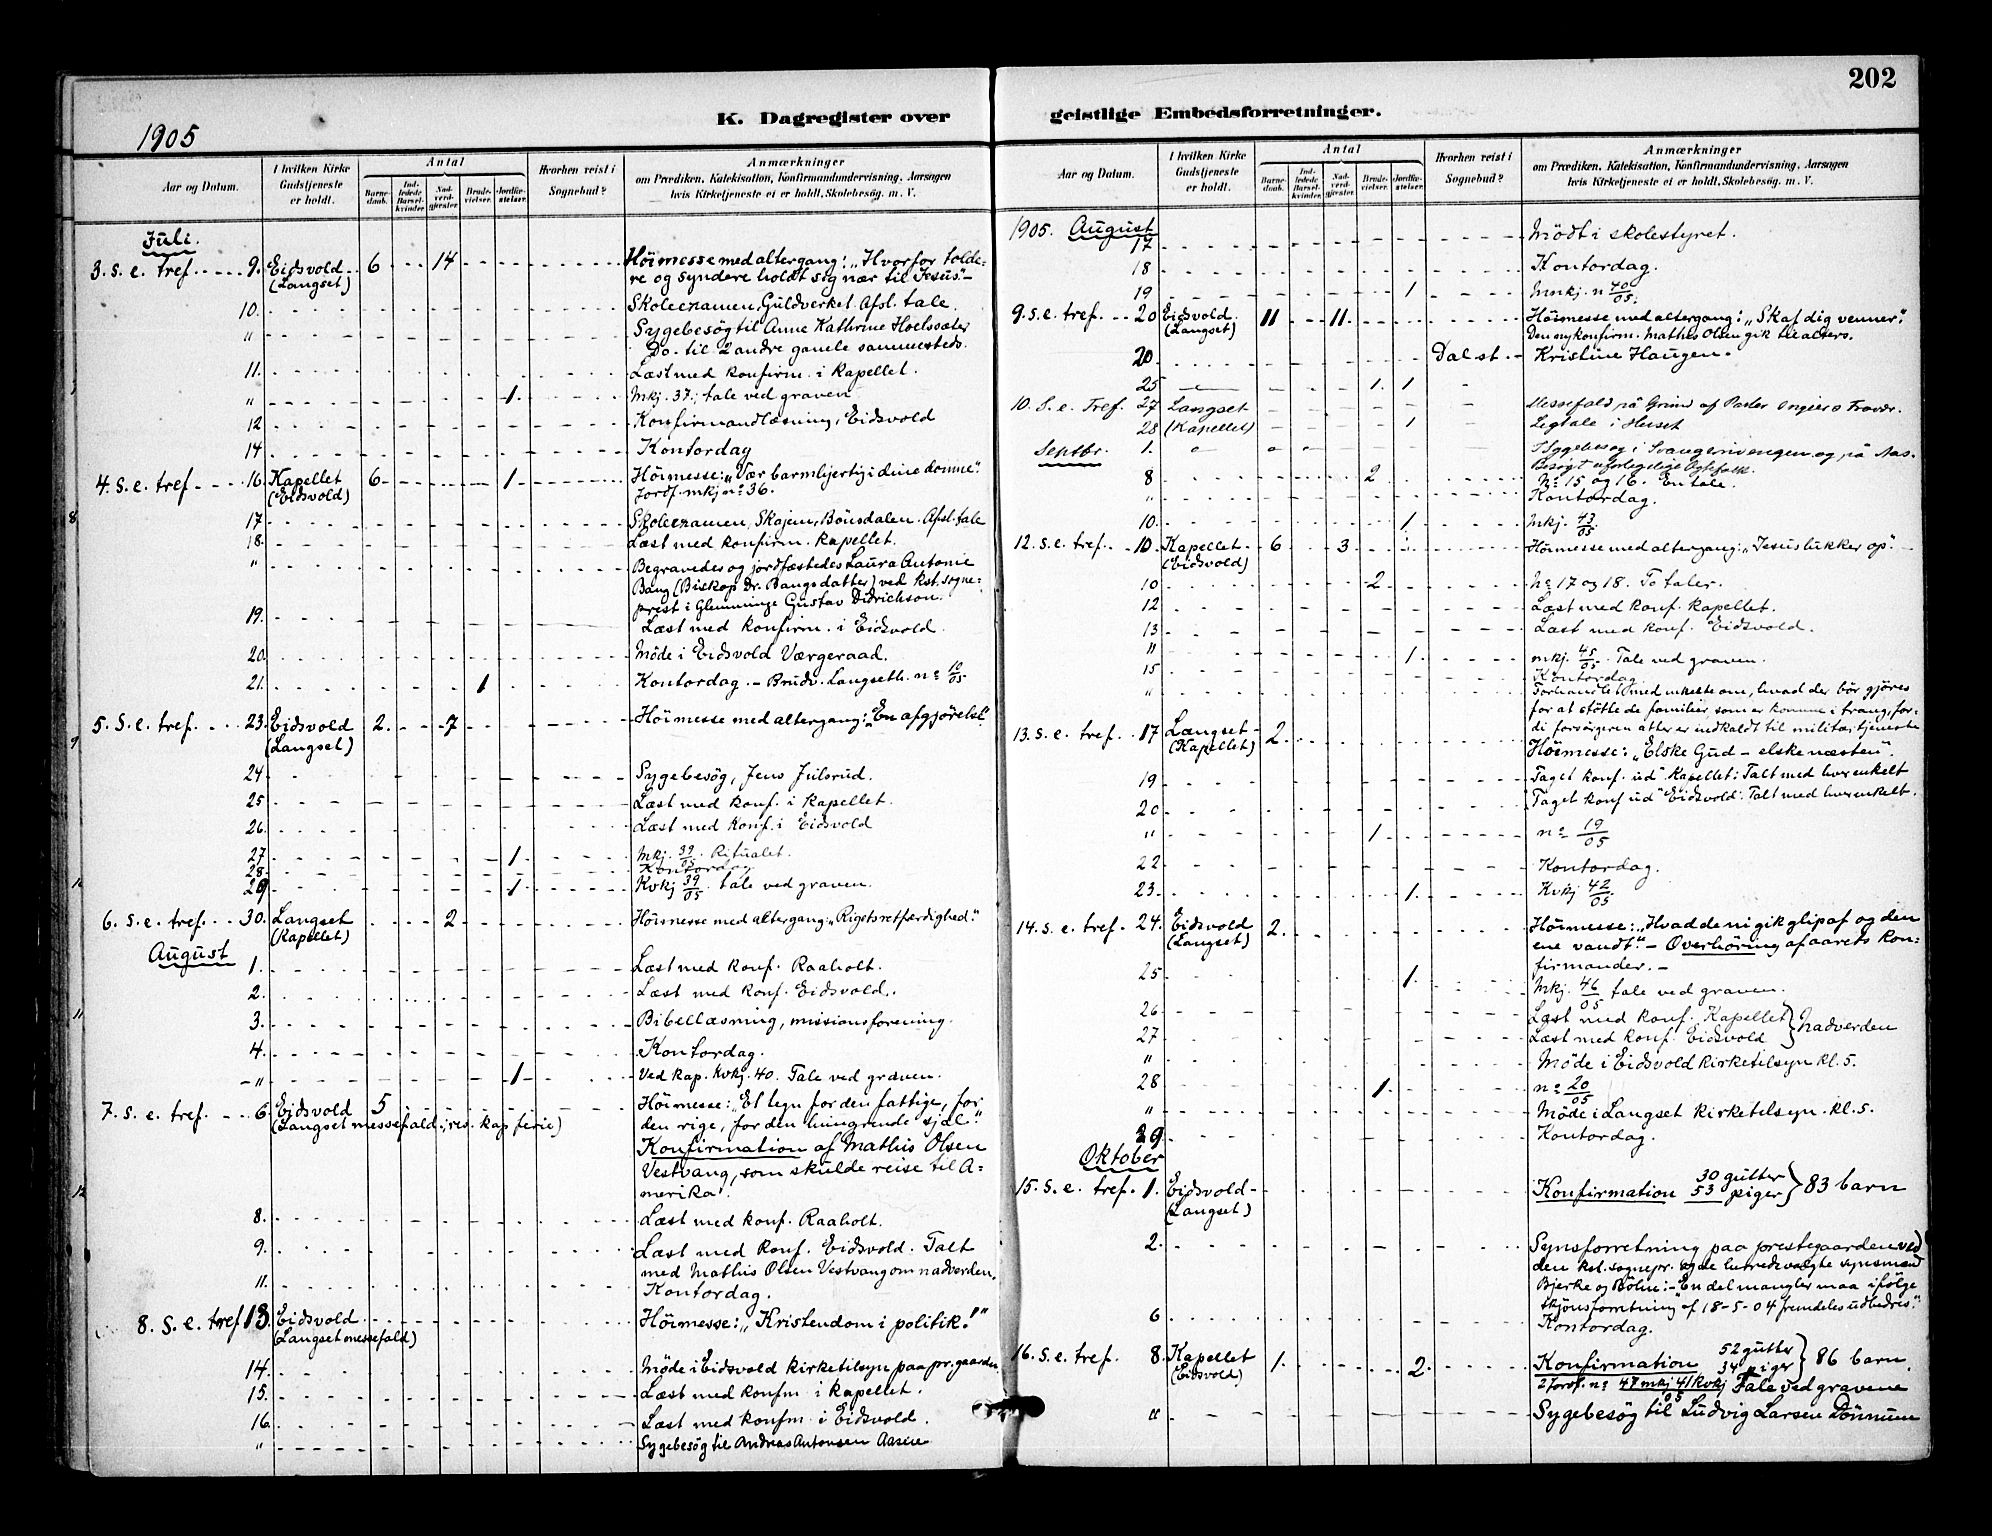 202
K. Dagregister over geistlige Embedsforretninger.
1905
Aar og Datum.
I hvilken Kirke Gudstjeneste er holdt.
Antal
Barne-daab.
Ind-ledede Barsel-kvinder.
Nad-verd-gjæster.
Brude-vielser.
Jordfæ-stelser.
Hvorhen reist i Sognebud?
Anmærkninger
om Prædiken, Katekisation, Konfirmandundervisning, Aarsagen
hvis Kirketjeneste ei er holdt, Skolebesøg. m. V.
Juli.
3. s. e. tref. 9. Eidsvold 6 14 Höimesse med altergang: „Hvorfor tolde-
(Langset) re og syndere holdt sig nær til Jesus“ –
10. Skoleexamen, Guldverket. Afsl. tale.
" Sygebesög til Anne Kathrine Hoelssæter
Do. til 2 andre gamle sammesteds.
11. Læst med konfirm. i Kapellet.
" 1. Mkj. 37.; tale ved graven
12 Konfirmandlæsning, Eidsvold
14 Kontordag
4. s. e. tref 16. Kapellet 6 1 Höimesse: „Vær barmhjertig i dine domme“.
(Eidsvold) Jordf. mkj nº 36.
17 Skoleexamen, Skojen, Bönsdalen. Afsl. tale
18. Læst med konfirm. Kapellet.
" Begravedes og jordfæstedes Laura Antonie
Bang (Biskop Dr. Bangs datter) ved kst. sogne-
prest i Glemminge Gustav Didrichson.
19. Læst med konfirm. i Eidsvold.
20. Möde i Eidsvold Værgeraad.
21. 1 Kontordag. – Brudv. Langseth. nº 10/05
5. s. e. tref. 23. Eidsvold 2. 7 Höimesse med altergang: „En afgjörelse“.
(Langset)
24 Sygebesög, Jens Julsrud.
25 Læst med konf. i Kapellet.
26. Læst med konf. i Eidsvold
27 1. Mkj. 39/05. Ritualet.
28. Kontordag
29 1. Kvkj 39/05. tale ved graven.
6. s. e. tref. 30. Langset 2 Höimesse med altergang: „Rigets retfærdighed.“
(Kapellet)
August
1. Læst med konf. Raaholt.
2. Læst med konf. Eidsvold.
3. Bibellæsning, missionsforening.
4. Kontordag.
" 1 Ved kap. kvkj. 40. Tale ved graven.
7. s. e. tref. 6. Eidsvold 5 Höimesse: „Et tegn for den fattige, for
(Langset messefald, res. kap ferie) den rige, for den hungrende sjæl“.
Konfirmation af Mathis Olsen
Vestvang, som skulde reise til A-
merika.
8. Læst med konf. Raaholt.
9. Læst med konf. Eidsvold. Talt
med Mathis Olsen Vestvang om nadverden.
11. Kontordag.
8. s. e. tref 13. Eidsvold Höimesse: „Kristendom i politik!“
(Langset messefald)
14. Möde i Eidsvold kirketilsyn paa pr. gaarden
15. Læst med konfm i kapellet.
16. Læst med konfm. i Eidsvold.
" Sygebesög til Andreas Antonsen Aasen
Aar og Datum.
I hvilken Kirke Gudstjeneste er holdt.
Antal
Barne-daab.
Ind-ledede Barsel-kvinder.
Nad-verd-gjæster.
Brude-vielser.
Jordfæ-stelser.
Hvorhen reist i Sognebud?
Anmærkninger
om Prædiken, Katekisation, Konfirmandundervisning, Aarsagen
hvis Kirketjeneste ei er holdt, Skolebesøg. m. V.
1905. August
17 Mödt i skolestyret.
18 Kontordag.
19 1 Mnkj. n 40/05.
9. s. e. tref. 20 Eidsvold. 11 11 Höimesse med altergang: „Skaf dig venner“.
(Langset) Den ny konfirm. Mathis Olsen gik til alters.
20. Dal st. Kristine Haugen.
25 1. 1
10. S. e. Tref. 27 Langset Messefald på Grund af Pastor
28 (Kapellet) 1 Ligtale i Huset
Septbr. 1. Sygebesøg i og på Aas.
Besøgt
8 2 Nº 15 og 16. En tale.
" Kontordag.
10. 1. Mkj. 43/05.
12. s. e. tref. 10. Kapellet 6 3 Höimesse med altergang: „Jesus lukker op“. –
(Eidsvold)
10 2 Nº 17 og 18. To taler.
12 Læst med konf. kapellet.
13 Læst med konf. Eidsvold.
" 1. mkj. 45/05. Tale ved graven.
15 Kontordag
" Forhandlet med enkelte om, hvad der bör gjöres
for at stötte de familier, som er komne i trang, for-
di forsörgeren atter er indkaldt til militærtjeneste
13. s. e. tref. 17 Langset 2. Höimesse: „Elske Gud – elske næsten“.
(Kapellet)
19 „Taget konf. ud“ Kapellet: Talt med hver enkelt
20 „Taget konf ud“ Eidsvold: Talt med hver enkelt.
" 1 nº 19/05
22 Kontordag.
23. 1. Kvkj 42/05.
14. s. e. tref. 24. Eidsvold 2. Höimesse: „Hvad de ni gik glip af og den
(Langset) ene vandt“. – Overhöring af aarets kon-
firmander. –
25 1. Mkj. 46/05 tale ved graven.
26 Læst med konf. Kapellet } Nadverden
27 Læst med konf. Eidsvold
" Möde i Eidsvold kirketilsyn kl. 5.
28 1. nº 20/05
" Möde i Langset kirketilsyn. kl. 5.
29 Kontordag.
Oktober
15. s. e. tref. 1. Eidsvold Konfirmation 30 gutter 53 piger } 83 barn
(Langset)
2. Synsforretning paa prestegaarden ved
den kst. sognepr. og de herredsvalgte synsmænd
Bjerke og Böhn: – En del mangler maa ifölge
skjönsforretning af 18-5-04 fremdeles udbedres.“
6 Kontordag.
16. s. e. tref. 8. Kapellet 1. 2. Konfirmation 52 gutter 34 piger } 86 barn.
(Eidsvold) 2 Jordf. nº 47 mkj 41 kvkj 05 Tale ved gravene
" Sygebesög til Ludvig Larsen Dönnum